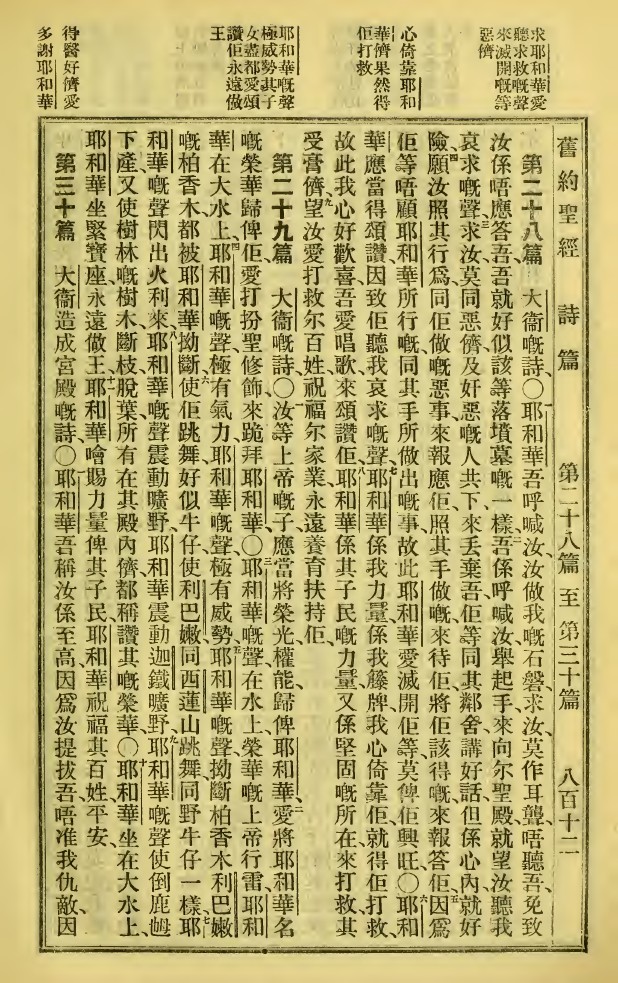 求耶和華愛
聽求救嘅聲
來滅開嘅等
惡儕
心倚靠耶和
華儕果然得
佢打救
耶和華嘅聲
極威勢其子
女盡都愛頌
讚佢永遠做
王
得醫好儕愛
多謝耶和華
舊約聖經 詩篇 第二十八篇至第三十篇 八百十二
第二十八篇 大衞嘅詩○一耶和華吾呼喊汝、汝做我嘅石磐、求汝莫作耳聾、唔聽吾、免致
汝係唔應答吾、吾就好似該等落墳墓嘅一樣、二吾係呼喊汝、舉起手來向尔聖殿、就望汝聽我
哀求嘅聲、三求汝莫同惡儕及奸惡嘅人共下來丢棄吾、佢等同其鄰舍講好話、但係心內就好
險、四願汝照其行爲、同佢做嘅惡事來報應佢、照其手做嘅來待佢、將佢該得嘅來報答佢、五因爲
佢等唔顧耶和華所行嘅、同其手所做出嘅事、故此耶和華愛滅開佢等、莫俾佢興旺、○六耶和
華應當得頌讚、因致佢聽我哀求嘅聲、七耶和華係我力量、係我籐牌、我心倚靠佢、就得佢打救、
故此我心好歡喜、吾愛唱歌來頌讚佢、八耶和華係其子民嘅力量、又係堅固嘅所在、來打救其
受膏儕、九望汝愛打救尔百姓、祝福尔家業、永遠養育扶持佢、
第二十九篇 大衞嘅詩○一汝等上帝嘅子、應當將榮光權能、歸俾耶和華、二愛將耶和華名
嘅榮華歸俾佢、愛打扮聖修飾來跪拜耶和華○三耶和華嘅聲在水上、榮華嘅上帝行雷、耶和
華在大水上、四耶和華嘅聲極有氣力、耶和華嘅聲、極有威勢、五耶和華嘅聲拗斷柏香木、利巴嫩
嘅柏香木、都被耶和華拗斷、六使佢跳舞好似牛仔、使利巴嫩同西蓮山跳舞、同野牛仔一樣、七耶
和華嘅聲閃出火利來、八耶和華嘅聲震動曠野、耶和華震動迦鐵曠野、九耶和華嘅聲使倒鹿𡜵
下產、又使樹林嘅樹木、斷枝脫葉、所有在其殿內儕、都稱讚其嘅榮華○十耶和華坐在大水上、
耶和華坐緊寶座、永遠做王、十一耶和華噲賜力量俾其子民、耶和華祝福其百姓平安、
第三十篇 大衞造成宮殿嘅詩○一耶和華吾稱汝係至高、因爲汝提拔吾、唔准我仇敵、因